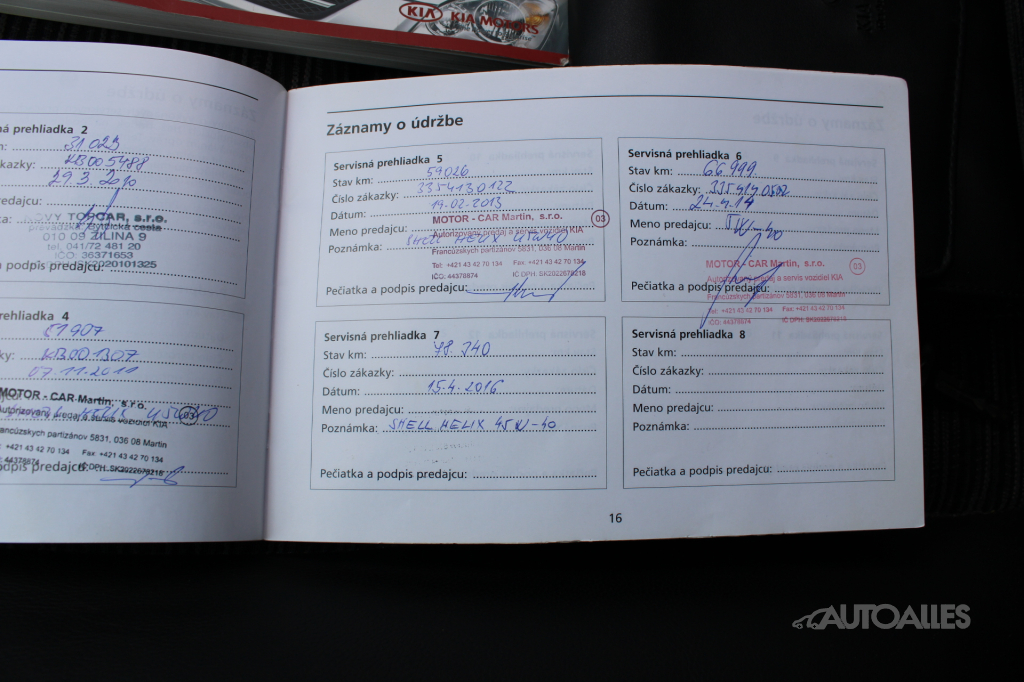 KIA KIA MOTORS
ná prehliadka 2
31 023
zákazky: KB005488
29 3. 2010
predajcu:
NOVY TOPCAR, s.r.o.
010 09 ŽILINA 9
tel. 041/72 481 20
IČO: 36371653
SK2020101325
a a podpis predajcu:
prehliadka 4
61907
ky: KB001307
07.11.2011
MOTOR - CAR Martin, s.r.o.
Autorizovaný predaj a servis vozidiel KIA
03
Francúzskych partizánov 5831, 036 08 Martin
+421 43 42 70 134 Fax: +421 43 42 70 134
44378874 IČ DPH: SK2022679218
podpis predajcu:
Záznamy o údržbe
Servisná prehliadka 5
Stav km: 59026
Číslo zákazky: 3354130122
Dátum: 19.02.2013
Meno predajcu:
MOTOR - CAR Martin, s.r.o. 03
Autorizovaný predaj a servis vozidiel KIA
Poznámka: SHELL HELIX
Francúzskych partizánov 5831, 036 08 Martin
Tel: +421 43 42 70 134 Fax: +421 43 42 70 134
IČO: 44378874 IČ DPH: SK2022679218
Pečiatka a podpis predajcu:
Servisná prehliadka 6
Stav km: 66 999
Číslo zákazky:
Dátum: 24.4.14
Meno predajcu: 5W-40
Poznámka:
MOTOR - CAR Martin, s.r.o. 03
Autorizovaný predaj a servis vozidiel KIA
Pečiatka a podpis predajcu:
Francúzskych partizánov 5831, 036 08 Martin
Tel: +421 43 42 70 134 Fax: +421 43 42 70 134
IČO: 44378874 IČ DPH: SK2022679218
Servisná prehliadka 7
Stav km: 78.340
Číslo zákazky:
Dátum: 15.4.2016
Meno predajcu:
Poznámka: SHELL HELIX 45W-40
Pečiatka a podpis predajcu:
Servisná prehliadka 8
Stav km:
Číslo zákazky:
Dátum:
Meno predajcu:
Poznámka:
Pečiatka a podpis predajcu:
16
AUTOALLES